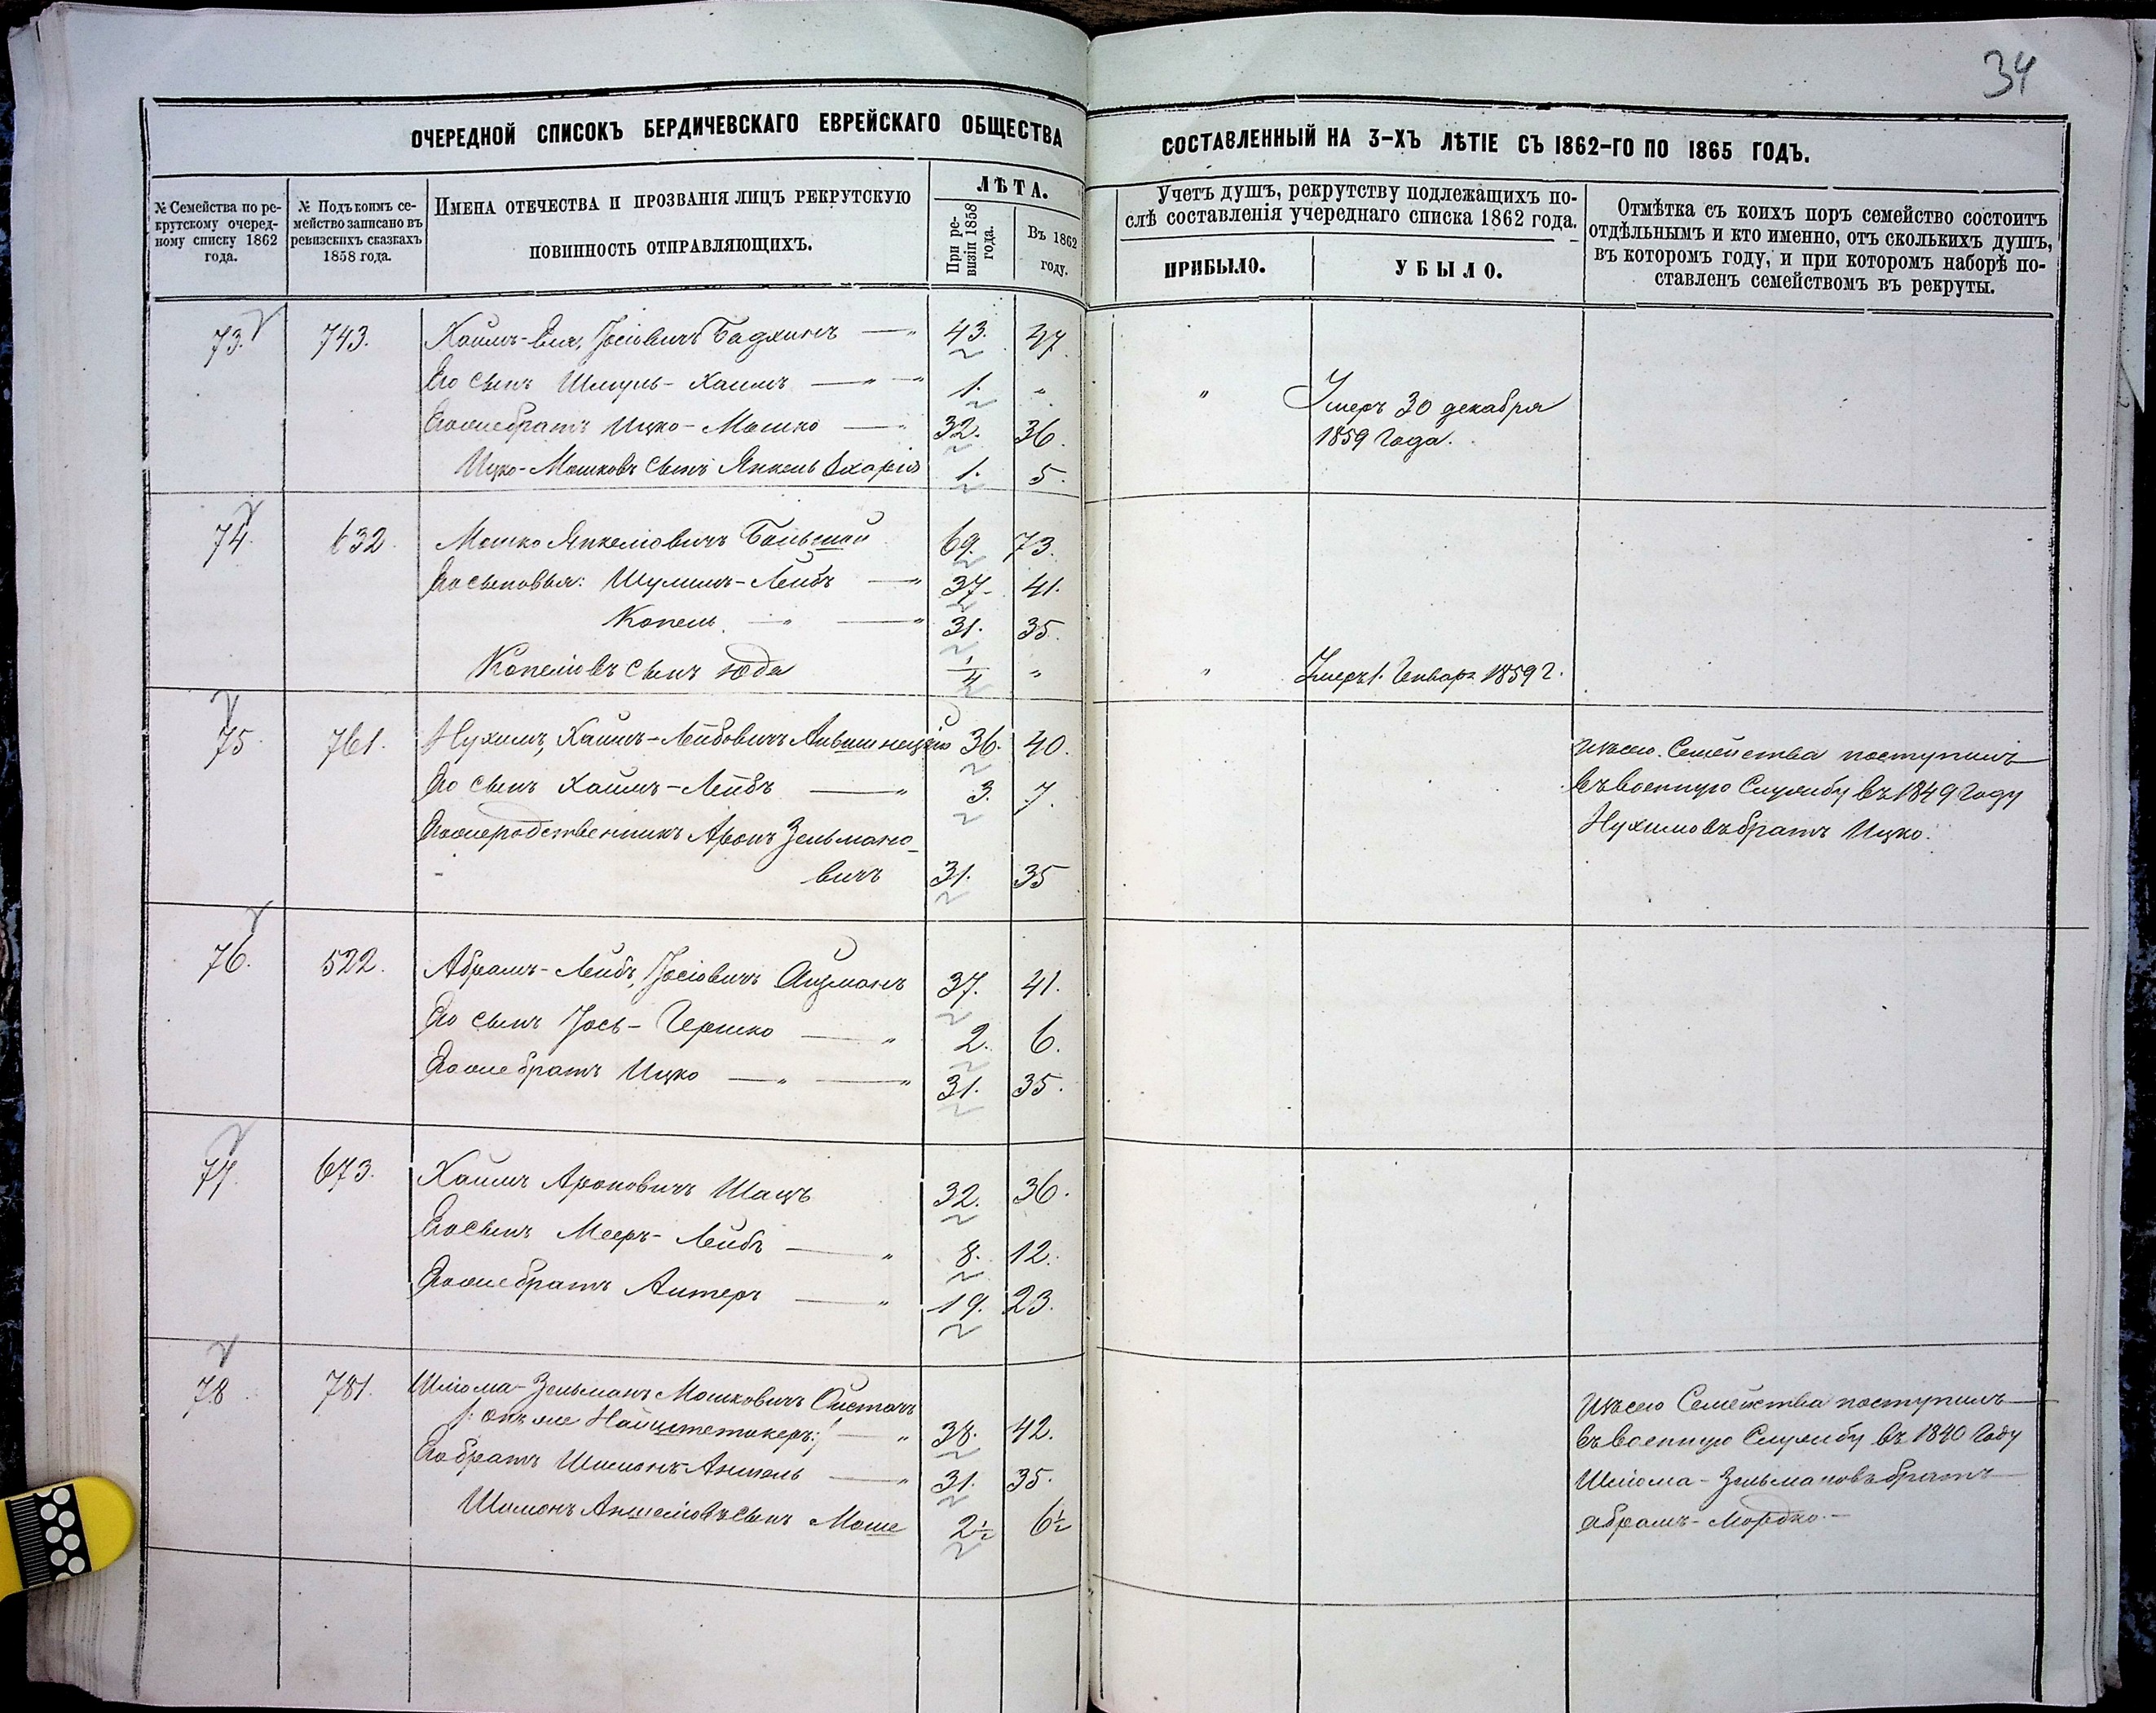 34
ОЧЕРЕДНОЙ СПИСОКЪ БЕРДИЧЕВСКАГО ЕВРЕЙСКАГО ОБЩЕСТВА СОСТАВЛЕННЫЙ НА 3-ХЪ ЛѢТІЕ СЪ 1862-ГО ПО 1865 ГОДЪ.
№ Семейства по ре-
крутскому очеред-
ному списку 1862
года.
№ Подъ коимъ се-
мейство записано въ
ревизскихъ сказкахъ
1858 года.
ИМЕНА ОТЕЧЕСТВА И ПРОЗВАНІЯ ЛИЦЪ РЕКРУТСКУЮ
ПОВИННОСТЬ ОТПРАВЛЯЮЩИХЪ.
ЛѢТА.
При ре-
визіи 1858
года.
Въ 1862
году.
Учетъ душъ, рекрутству подлежащихъ по-
слѣ составленія учереднаго списка 1862 года.
ПРИБЫЛО.
УБЫЛО.
Отмѣтка съ коихъ поръ семейство состоитъ
отдѣльнымъ и кто именно, отъ сколькихъ душъ,
въ которомъ году, и при которомъ наборѣ по-
ставленъ семействомъ въ рекруты.
73. 743. Хаимъ- Іосіовичъ Бадхинъ —„ 43. 47.
Его сынъ Шмуль-Хаимъ —„—„ 1. „ „ Умеръ 30 декабря
Егоже братъ Ицко-Мошко —„ 32. 36. 1859 Года.
Ицко-Мошковъ сынъ Янкель 1. 5.
74. 632. Мошко Янкеліовичъ Большой 69. 73.
Его сыновья: Шулимъ-Лейбъ —„ 37. 41.
Копель —„ —„ 31. 35.
Копеліовъ сынъ Юда 1/4 „ „ Умеръ 1. Генваря 1859 г.
75. 761. Нухимъ, Хаимъ-Лейбовичъ 36. 40. Изъ сего Семейства поступилъ
Его сынъ Хаимъ-Лейбъ —„ 3. 7. въ военную Службу въ 1849 Году
Егоже родственникъ Аронъ Зельмано- Нухимовъ братъ Ицко.
вичъ 31. 35
76. 522. Абрамъ-Лейбъ, Іосіовичъ Айзманъ 37. 41.
Его сынъ Іось-Гершко —„ 2. 6.
Егоже братъ Ицко —„ —„ 31. 35.
77. 673. Хаимъ Ароновичъ Шацъ 32. 36.
Его сынъ Мееръ-Лейбъ —„ 8. 12.
Егоже братъ Алтеръ —„ 19. 23.
78. 781. Шліома-Зельманъ Мошковичъ Изъ сего Семейства поступилъ
/: онъ же :/ —„ 38. 42. въ военную Службу въ 1840 Году
Его братъ Шимонъ-Аншель —„ 31. 35. Шліома-Зельмановъ братъ
Шимонъ Аншеліовъ сынъ Моше 2½ 6½ Абрамъ-Мордко.—